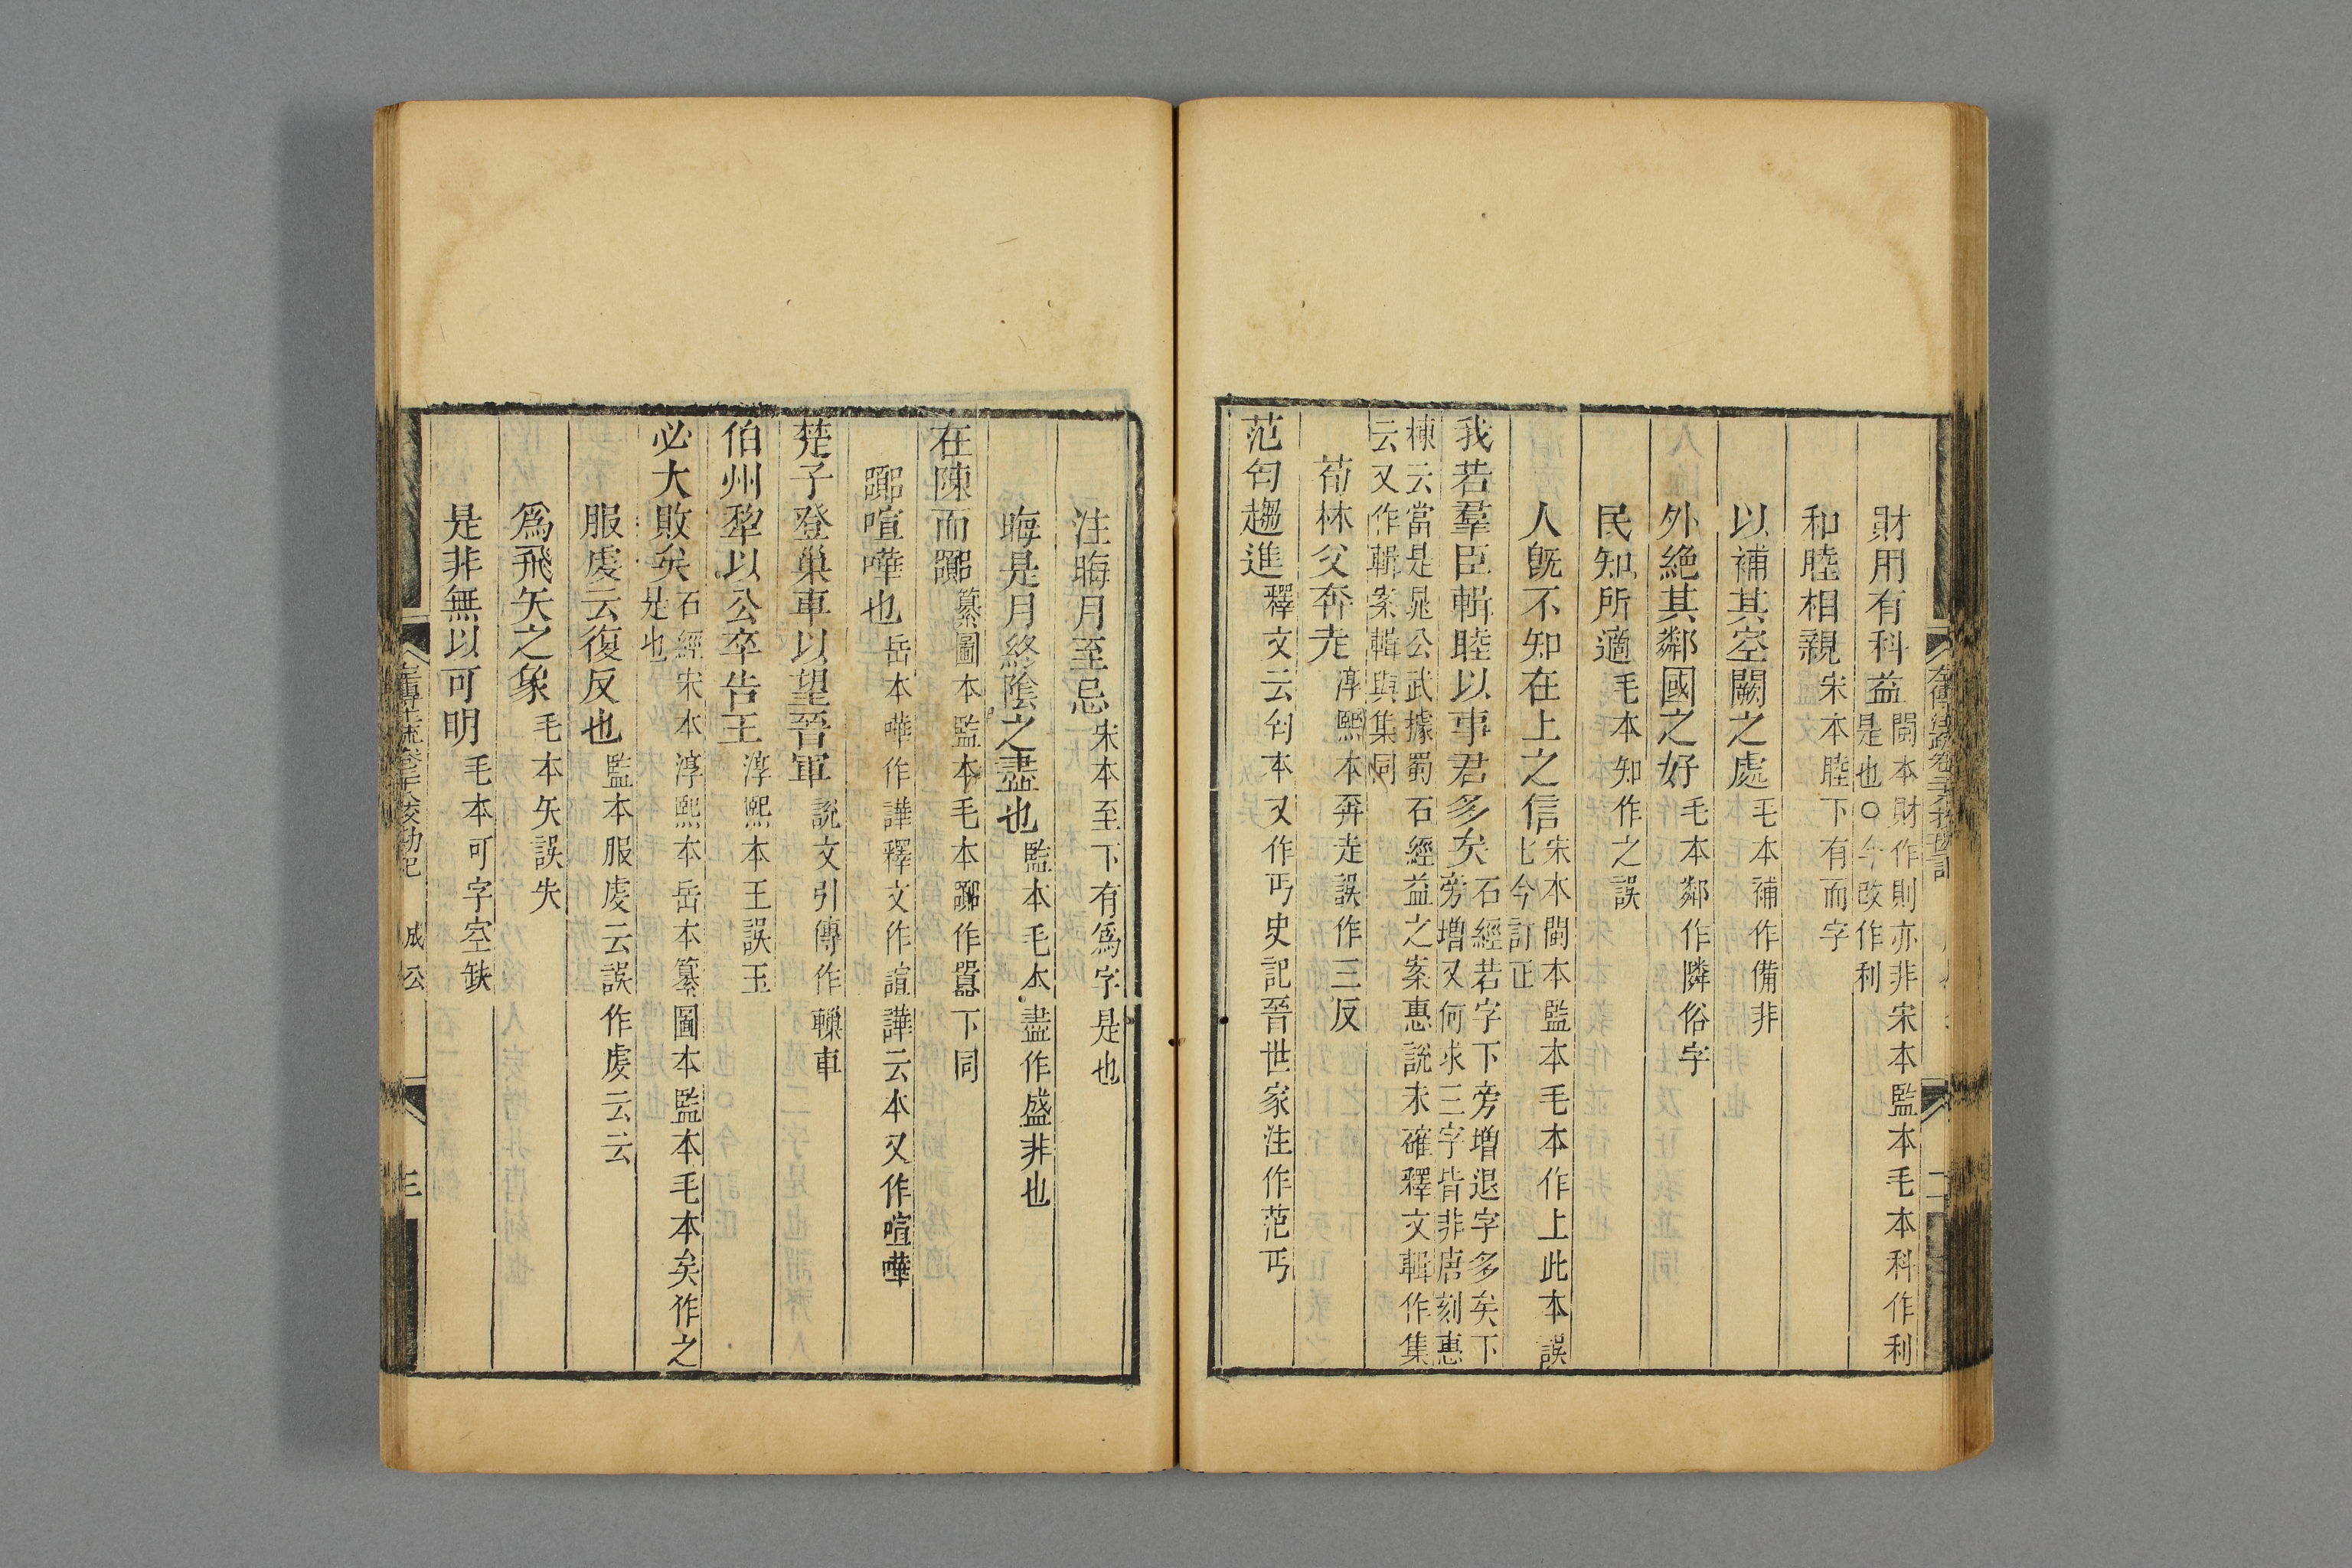 財用有科益閩本財作則亦非宋本監本毛本科作利
是也○今改作利
和睦相親宋本睦下有而字
以補其空闕之處毛本補作備非
外絶其鄰國之好毛本鄰作隣俗字
民知所適毛本知作之誤
人旣不知在上之信宋本閩本監本毛本作上此本誤
匕今訂正
我若羣臣輯睦以事君多矣石經若字下旁增退字多矣下
旁增又何求三字皆非唐刻惠
棟云當是晁公武據蜀石經益之案惠說未確釋文輯作集
云又作輯案輯與集同
荀林父奔走淳熙本奔走誤作三反
范匄趨進釋文云匄本又作丐史記晉世家注作范丐
注晦月至忌宋本至下有爲字是也
晦是月終陰之盡也監本毛本盡作盛非也
在陳而嚻纂圖本監本毛本嚻作囂下同
嚻喧嘩也岳本嘩作譁釋文作諠譁云本又作喧嘩
楚子登巢車以望晉軍說文引傳作轈車
伯州犂以公卒告王淳熙本王誤玉
必大敗矣石經宋本淳熙本岳本纂圖本監本毛本矣作之
是也
服虔云復反也監本服虔云誤作虔云云
爲飛矢之象毛本矢誤失
是非無以可明毛本可字空缺
成公
三